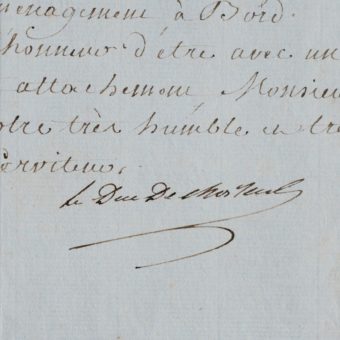 ménagement à Bord.
honneur d'être avec un
attachement Monsieu
otre très humble et trè
serviteur.
Le Duc De choiseul